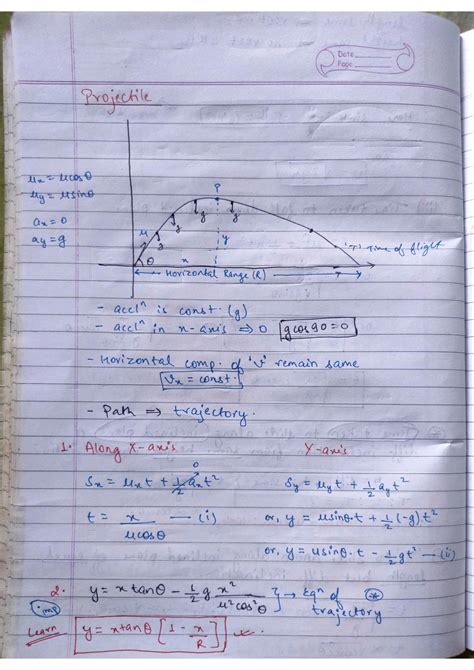 Date
Page
Projectile
ux = ucosθ
uy = usinθ
ax = 0
ay = g
P
u
g
g
g
g
y
θ
x
'T' Time of flight
Horizontal Range (R)
- acclⁿ is const. (g)
- acclⁿ in x-axis ⇒ 0 gcos90 = 0
- Horizontal comp. of 'v' remain same
Vx = const.
- Path ⇒ trajectory.
1. Along X-axis Y-axis
Sx = uxt + 1/2 axt² 0 Sy = uyt + 1/2 ayt²
t = x/ucosθ — (i) or, y = usinθ.t + 1/2 (-g).t²
or, y = usinθ.t - 1/2 gt² — (ii)
2. y = x tanθ - 1/2 g x²/u²cos²θ ] → Eqⁿ of trajectory
imp
Learn y = xtanθ [1 - x/R]